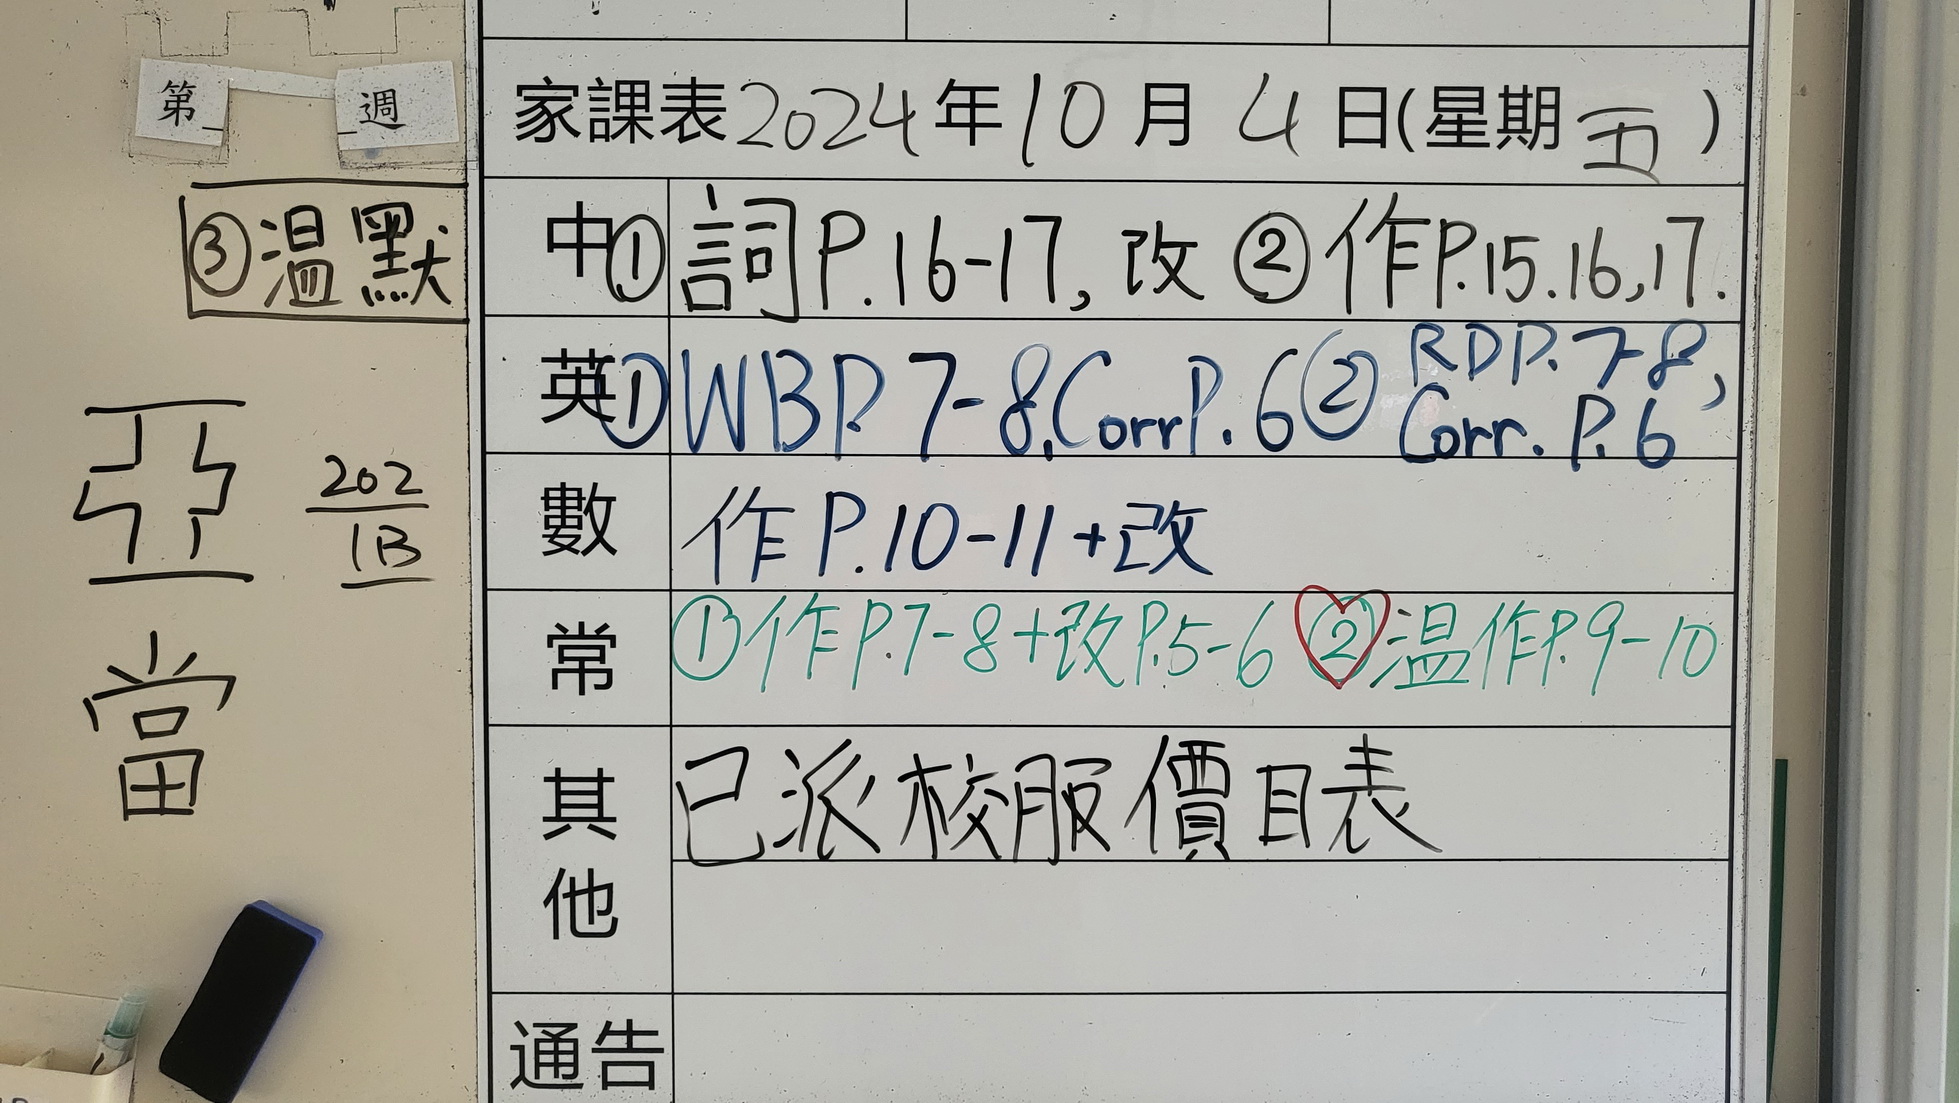 第_ _週
家課表2024年10月4日(星期五)
③温默
中①詞P.16-17,改 ②作P.15.16,17.
英①WBP.7-8,Corr P.6 ②RDP.7-8,
Corr. P.6
亞當
202
1B
數 作P.10-11+改
常 ①作P.7-8+改P.5-6 ②温作P.9-10
其他 已派校服價目表
通告